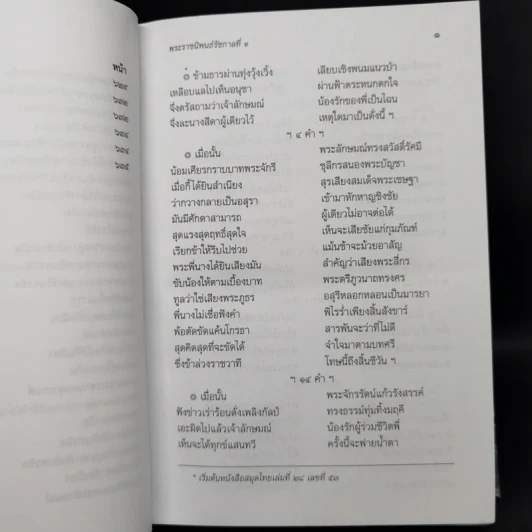 หน้า
๖๒๙
๖๓๑
๖๓๒
๖๓๔
๖๓๔
๖๓๕
พระราชนิพนธ์รัชกาลที่ ๑
๑
๏ ข้ามธารผ่านทุ่งวุ้งเวิ้ง เลียบเชิงพนมแนวป่า
เหลือบแลไปเห็นอนุชา ผ่านฟ้าตระหนกตกใจ
จึ่งตรัสถามว่าเจ้าลักษมณ์ น้องรักของพี่เป็นไฉน
จึ่งละนางสีดาผู้เดียวไว้ เหตุใดมาเป็นดั่งนี้ ฯ
ฯ ๔ คำ ฯ
๏ เมื่อนั้น พระลักษมณ์ทรงสวัสดิ์รัศมี
น้อมเศียรกราบบาทพระจักรี ชุลีกรสนองพระบัญชา
เมื่อกี้ได้ยินสำเนียง สุรเสียงสมเด็จพระเชษฐา
ว่ากวางกลายเป็นอสุรา เข้ามาหักหาญชิงชัย
มันมีศักดาสามารถ ผู้เดียวไม่อาจต่อได้
สุดแรงสุดฤทธิ์สุดใจ เห็นจะเสียชัยแก่กุมภัณฑ์
เรียกข้าให้รีบไปช่วย แม้นช้าจะม้วยอาสัญ
พระพี่นางได้ยินเสียงมัน สำคัญว่าเสียงพระสี่กร
ขับน้องให้ตามเบื้องบาท พระตรีภูวนาถทรงศร
ทูลว่าใช่เสียงพระภูธร อสุรีหลอกหลอนเป็นมารยา
พี่นางไม่เชื่อฟังคำ พิไรร่ำเพียงสิ้นสังขาร์
พ้อตัดขัดแค้นโกรธา สารพันจะว่าที่ไม่ดี
สุดคิดสุดที่จะขัดได้ จำใจมาตามบทศรี
ซึ่งข้าล่วงราชวาที โทษนี้ถึงสิ้นชีวัน ฯ
ฯ ๑๔ คำ ฯ
๏ เมื่อนั้น พระจักรรัตน์แก้วรังสรรค์
ฟังข่าวเร่าร้อนดั่งเพลิงกัลป์ ทรงธรรม์ทุ่มทิ้งมฤคี
เอะผิดไปแล้วเจ้าลักษมณ์ น้องรักผู้ร่วมชีวิตพี่
เห็นจะได้ทุกข์แสนทวี ครั้งนี้จะฟายน้ำตา
* เริ่มต้นหนังสือสมุดไทยเล่มที่ ๒๘ เลขที่ ๕๓